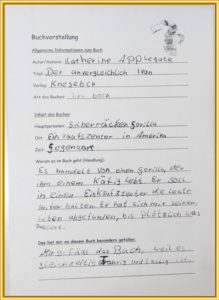 Buchvorstellung
Allgemeine Informationen zum Buch
Autor/Autorin: Katherine Applegate
Titel: Der unvergleichlich Ivan
Verlag: Knesebeck
Art des Buches:
Inhalt des Buches
Hauptpersonen: Silberrücken gorilla
Ort: Einkaufszenter in Amerika
Zeit: Gegenwart
Worum es im Buch geht (Handlung):
Es handelt von einen gorilla, der
in einem Käfig lebt. Er soll
in einen Einkaufszenter die Leute
unterhalten. Er hat sich mit seinem
leben abgefunden, bis plötzlich was
passiert.
Das hat mir an diesem Buch besonders gefallen:
Mir gefällt das Buch, weil es
gleichzeitig Traurig und lustig ist.